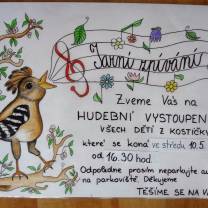 Jarní zpívání
Zveme Vás na
HUDEBNÍ VYSTOUPENÍ
VŠECH DĚTÍ Z KOSTIČKY
které se koná ve středu 10.5.
od 16.30 hod.
Odpoledne prosím neparkujte
na parkovišti. Děkujeme
TĚŠÍME SE NA